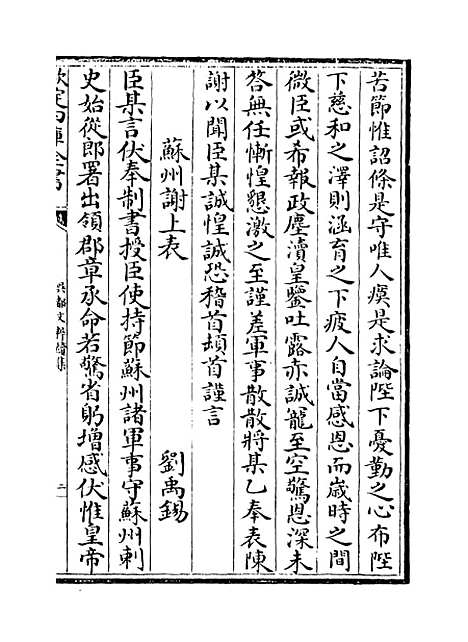 苦節惟詔條是守唯人瘼是求論陛下憂勤之心布陛
下慈和之澤則涵育之下疲人自當感恩而歲時之間
微臣或希報政塵瀆皇鑒吐露赤誠寵至空驚恩深未
答無任慚惶懇激之至謹差軍事散散將某乙奉表陳
謝以聞臣某誠惶誠恐稽首頓首謹言
蘇州謝上表 劉禹錫
臣某言伏奉制書授臣使持節蘇州諸軍事守蘇州刺
史始從郎署出領郡章承命若驚省躬增感伏惟皇帝
欽定四庫全書
吳都文粹續集
二